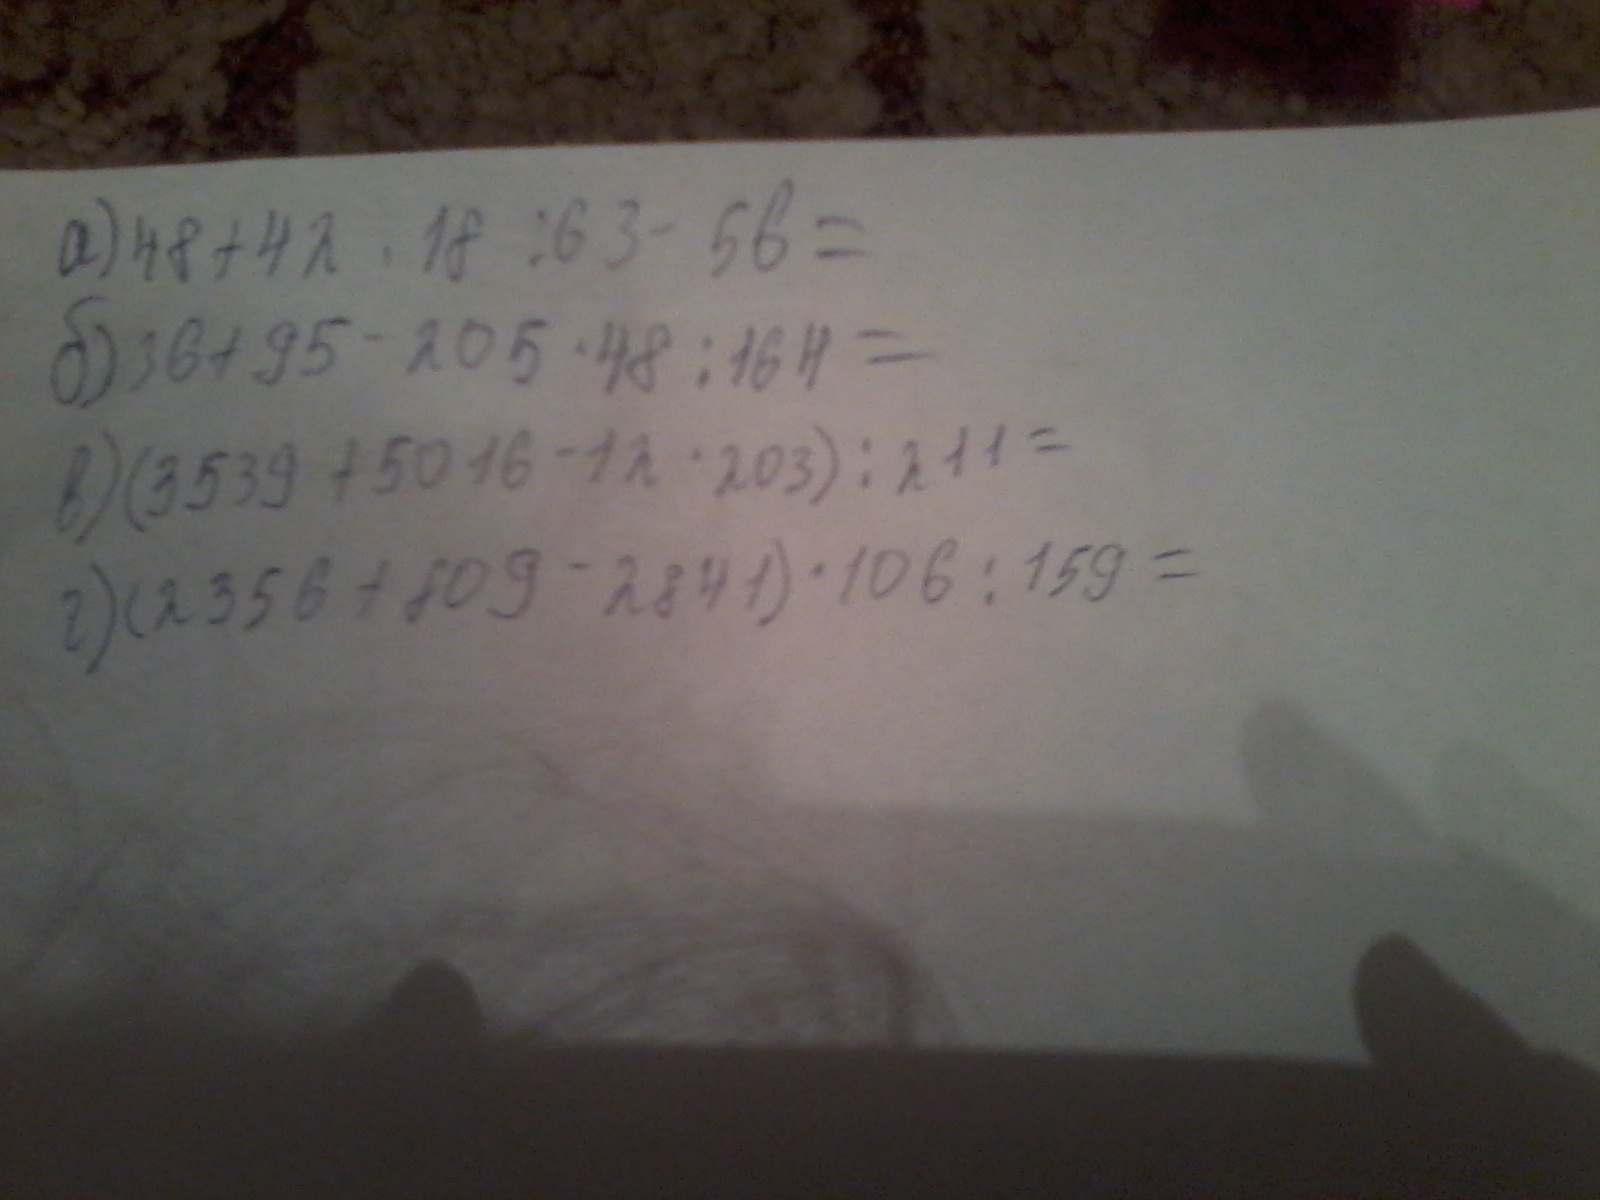 а) 48 + 42 · 18 : 63 - 56 =
б) 36 + 95 - 205 · 48 : 164 =
в) (3539 + 5016 - 12 · 203) : 211 =
г) (2356 + 809 - 2841) · 106 : 159 =